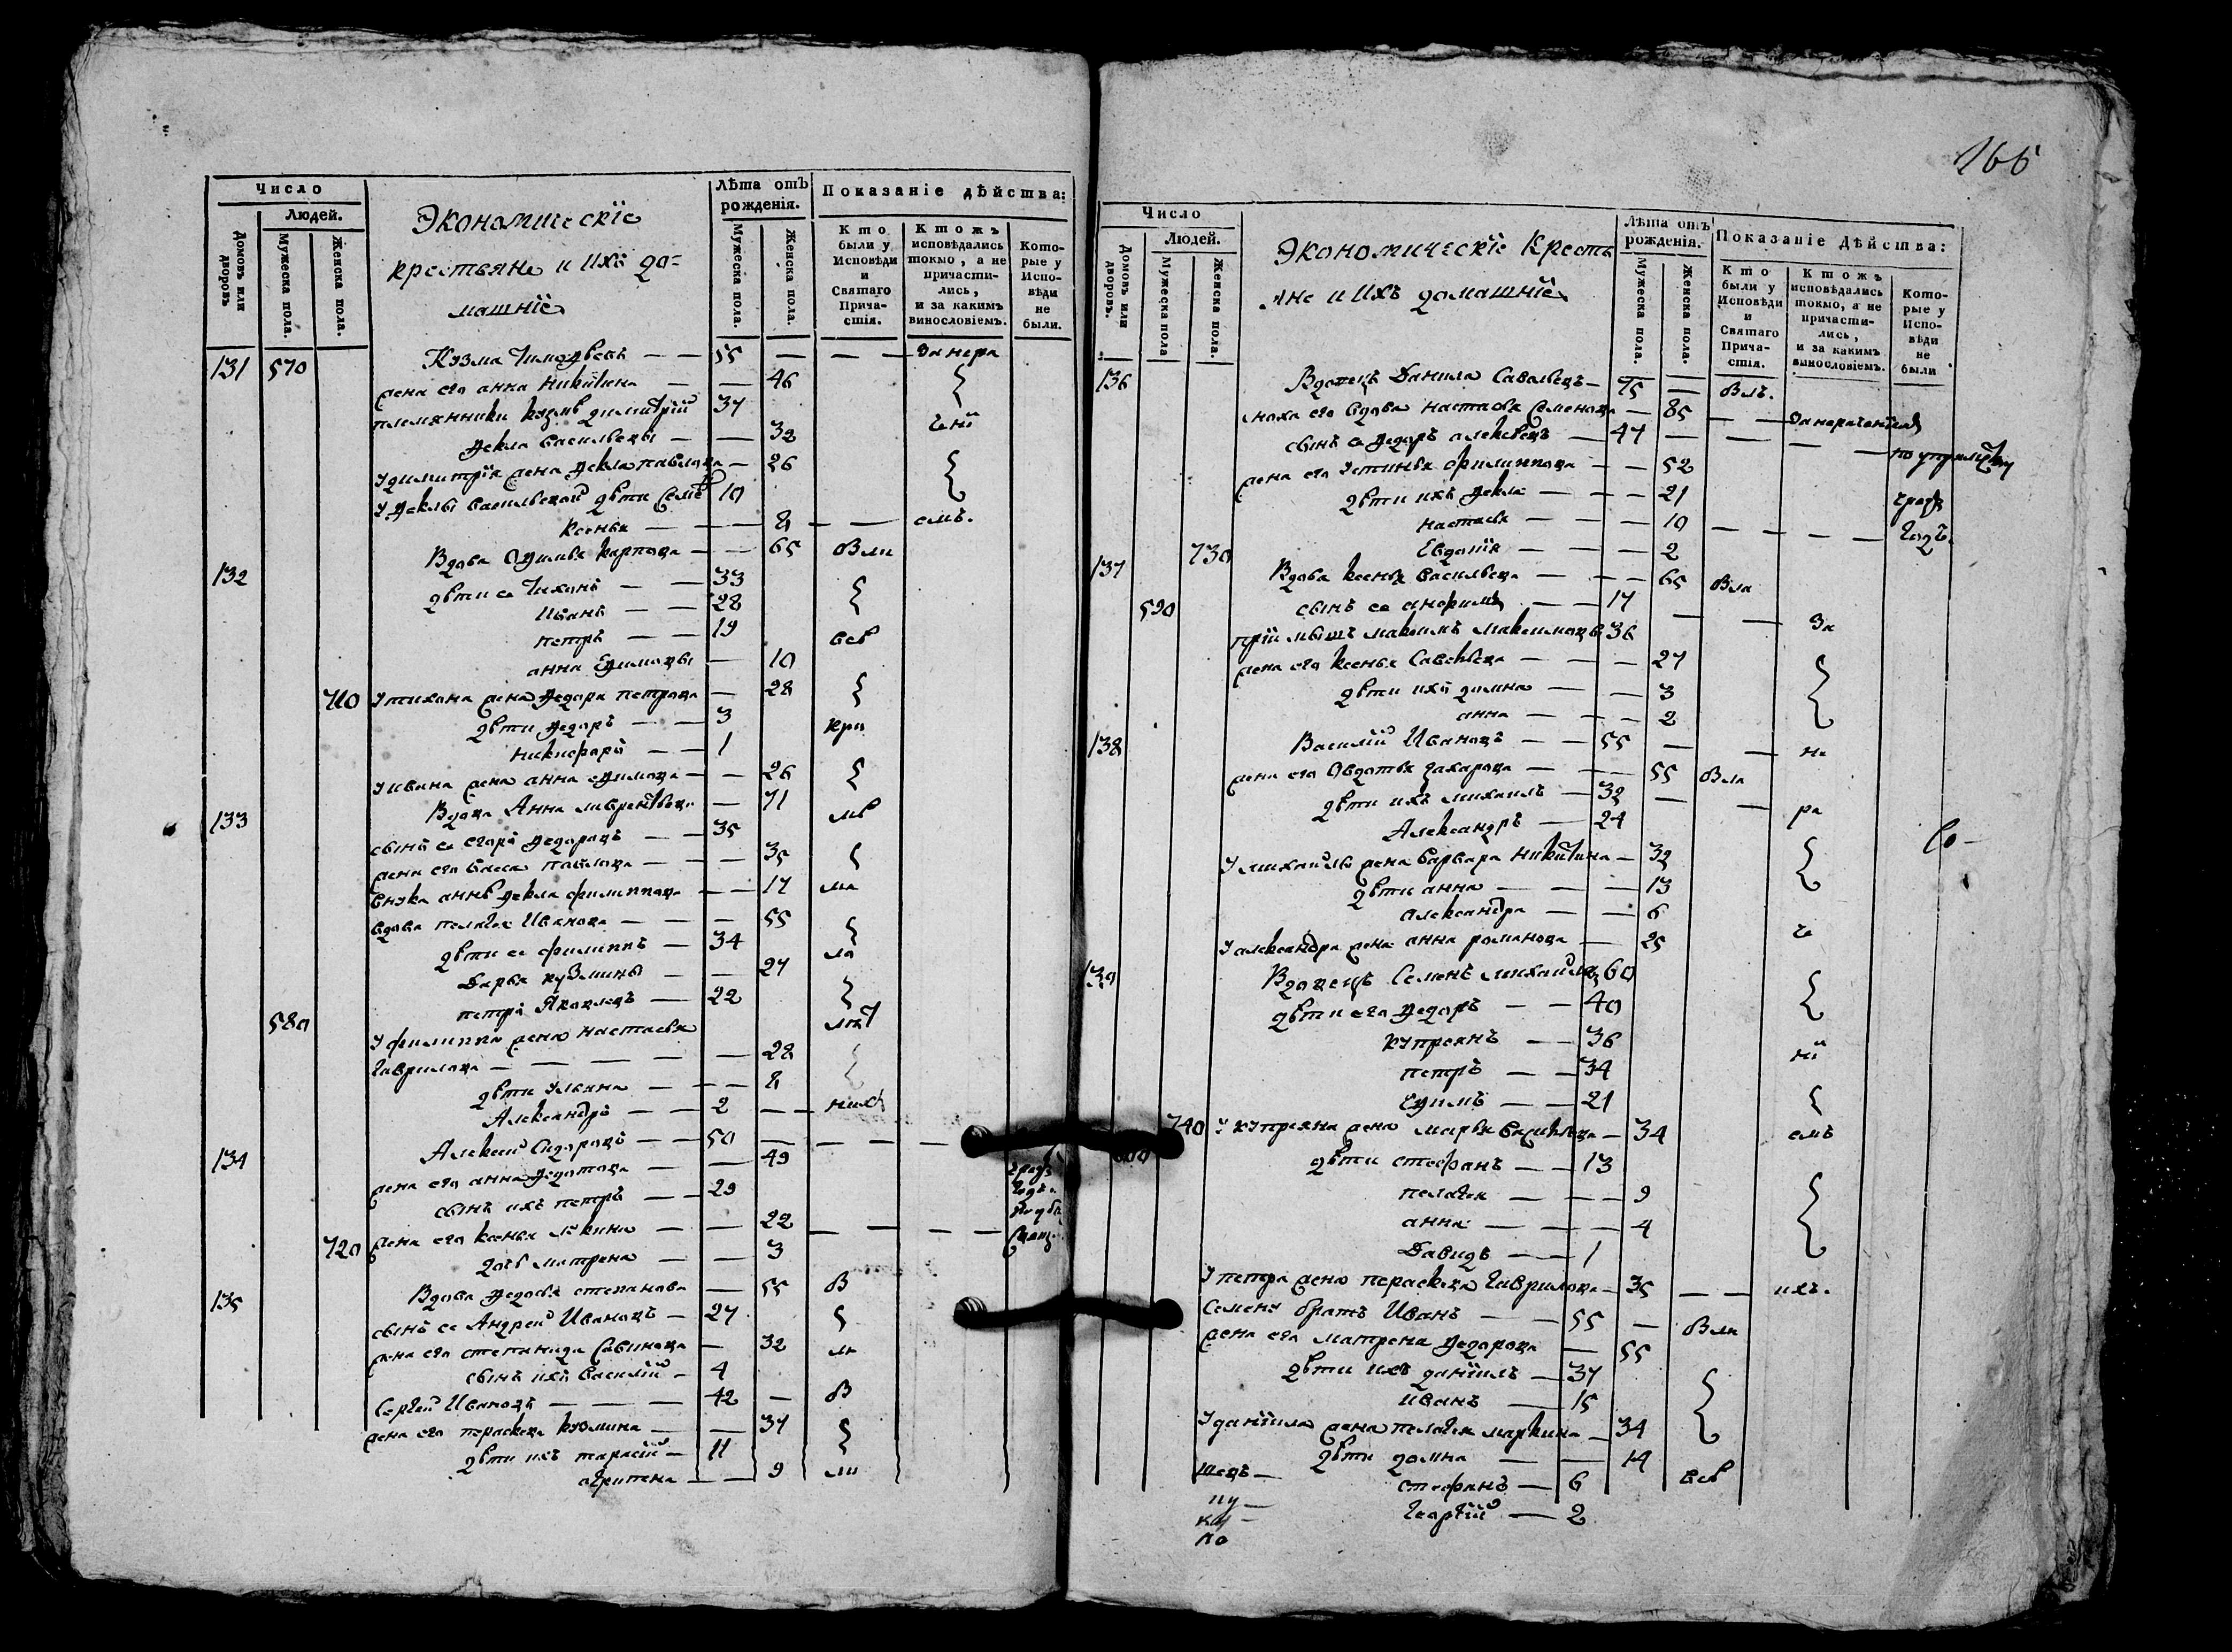 Число
Людей.
Домовъ или дворовъ
Мужеска пола.
Женска пола.
Экономическіе
крестьяне и ихъ до=
машніе
Лѣта отъ рожденія.
Мужеска пола.
Женска пола.
Показаніе дѣйства:
Кто были у Исповѣди и Святаго Причастія.
Ктожъ исповѣдались токмо, а не причастились, и за какимъ винословіемъ.
Которые у Исповѣди не были.
131 570 Кузма Тимофѣевъ — — 55 — — — за нера
жена его анна никитина — — 46
племянники кузмѣ димитрій 37 чені
Фекла васильевы — — 32
У димитрія жена Фекла павлова — 26
У Феклы васильевой дѣти 10
ксенья — — — 8 — — емъ.
132 Вдова карпова — — 65 Были
дѣти ея Тихонъ — — 33
Иванъ — — 28
петръ — — 19 всѣ
анна Ефимовы — 10
710 У тихона жена Федора петрова — 28
дѣти Федоръ — — 3 кро
никифоръ — — 1
У ивана жена анна ефимова — — 26
133 Вдова Анна лаврентьева — 71 мѣ
сынъ ея егоръ Федоровъ — — 35
жена его павлова — — — 35
внука аннѣ Фекла филиппова — — 17 ма
вдова пелагея Иванова — — — 55
дѣти ея филиппъ — 34 ло
Дарья кузмины — — 27
580 петръ Яковлевъ — 22 лѣт
У филиппа жена настасья
Гаврилова — — — — — 28
дѣти Ульяна — — — 8
Александръ — — 2 — — нихъ
134 Алексей Сидоровъ — — 50 — — — —
жена его анна Федотова — — 49
сынъ ихъ петръ — — 29
жена его ксенья — — 22 — — — —
720 дочь матрена — — 3
135 Вдова Федосья степанова — 55 В
сынъ ея Андрей Ивановъ — 27
жена его степанида Савинова — 32
сынъ ихъ василій — 4
Сергей Ивановъ — — — 42 — В
жена его параскева кузмина — — 37
дѣти ихъ тарасій — 11
агрипена — — 9 ли
166
Число
Людей.
Домовъ или дворовъ.
Мужеска пола
Женска пола.
Экономическіе Кресть
яне и ихъ домашніе
Лѣта отъ рожденія.
Мужеска пола.
Женска пола.
Показаніе дѣйства:
Кто были у Исповѣди и Святаго Причастія.
Ктожъ исповѣдались токмо, а не причастились, и за какимъ винословіемъ.
Которые у Исповѣди не были
136 Вдовецъ Данила Савельевъ — 75 — Былъ.
сноха его вдова настасья Семенова — 85 — — за нераченіемъ
сынъ ея Федоръ алексѣевъ — 47 — — — —
жена его Устинья филиппова — — 52
дѣти ихъ Фекла — — — 21
настасья — — — 10 — — — —
730 Евдокія — — — 2
137 Вдова ксенья васильева — — — 65 Была
590 сынъ ея — — 17 — — За
пріимышъ максимъ максимовъ 36
жена его ксенья Савельева — — — 27
дѣти ихъ домна — — 3
анна — — — 2
138 Василій Ивановъ — — 55 — — не
жена его Авдотья Захарова — — — 55 Была
дѣти ихъ михаилъ — 32 — — ра
Александръ — 24
У михаила жена варвара никитина — 32
дѣти анна — — — 13
александра — — 6
У александра жена анна романова — 25 че
139 Вдовецъ Семенъ михайловъ 60
дѣти его Федоръ — — 40
купреянъ — — 36 ні
петръ — — 34
Ефимъ — — 21
740 У купреяна жена марья — 34 емъ
600 дѣти стефанъ — — 13
пелагея — — — 9
анна — — — 4
Давидъ — — 1
У петра жена параскева Гаврилова — 35 — — ихъ.
Семену братъ Иванъ — — 55 — Были
жена его матрена Федорова — 55
дѣти ихъ даніилъ — 37
иванъ — 15
У даніила жена пелагея маркина — 34
дѣти домна — — 14
стефанъ — 6 всѣ
Георгій — 2